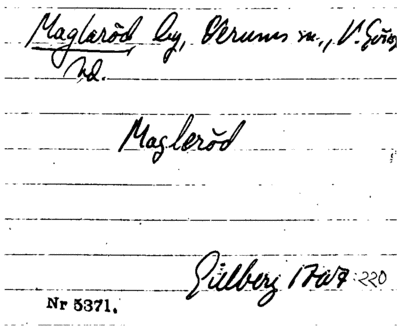 Magleröd, by, Verums sn., V. Göinge
hd.
Magleröd
Gillberg 1767: 220
Nr 5371.